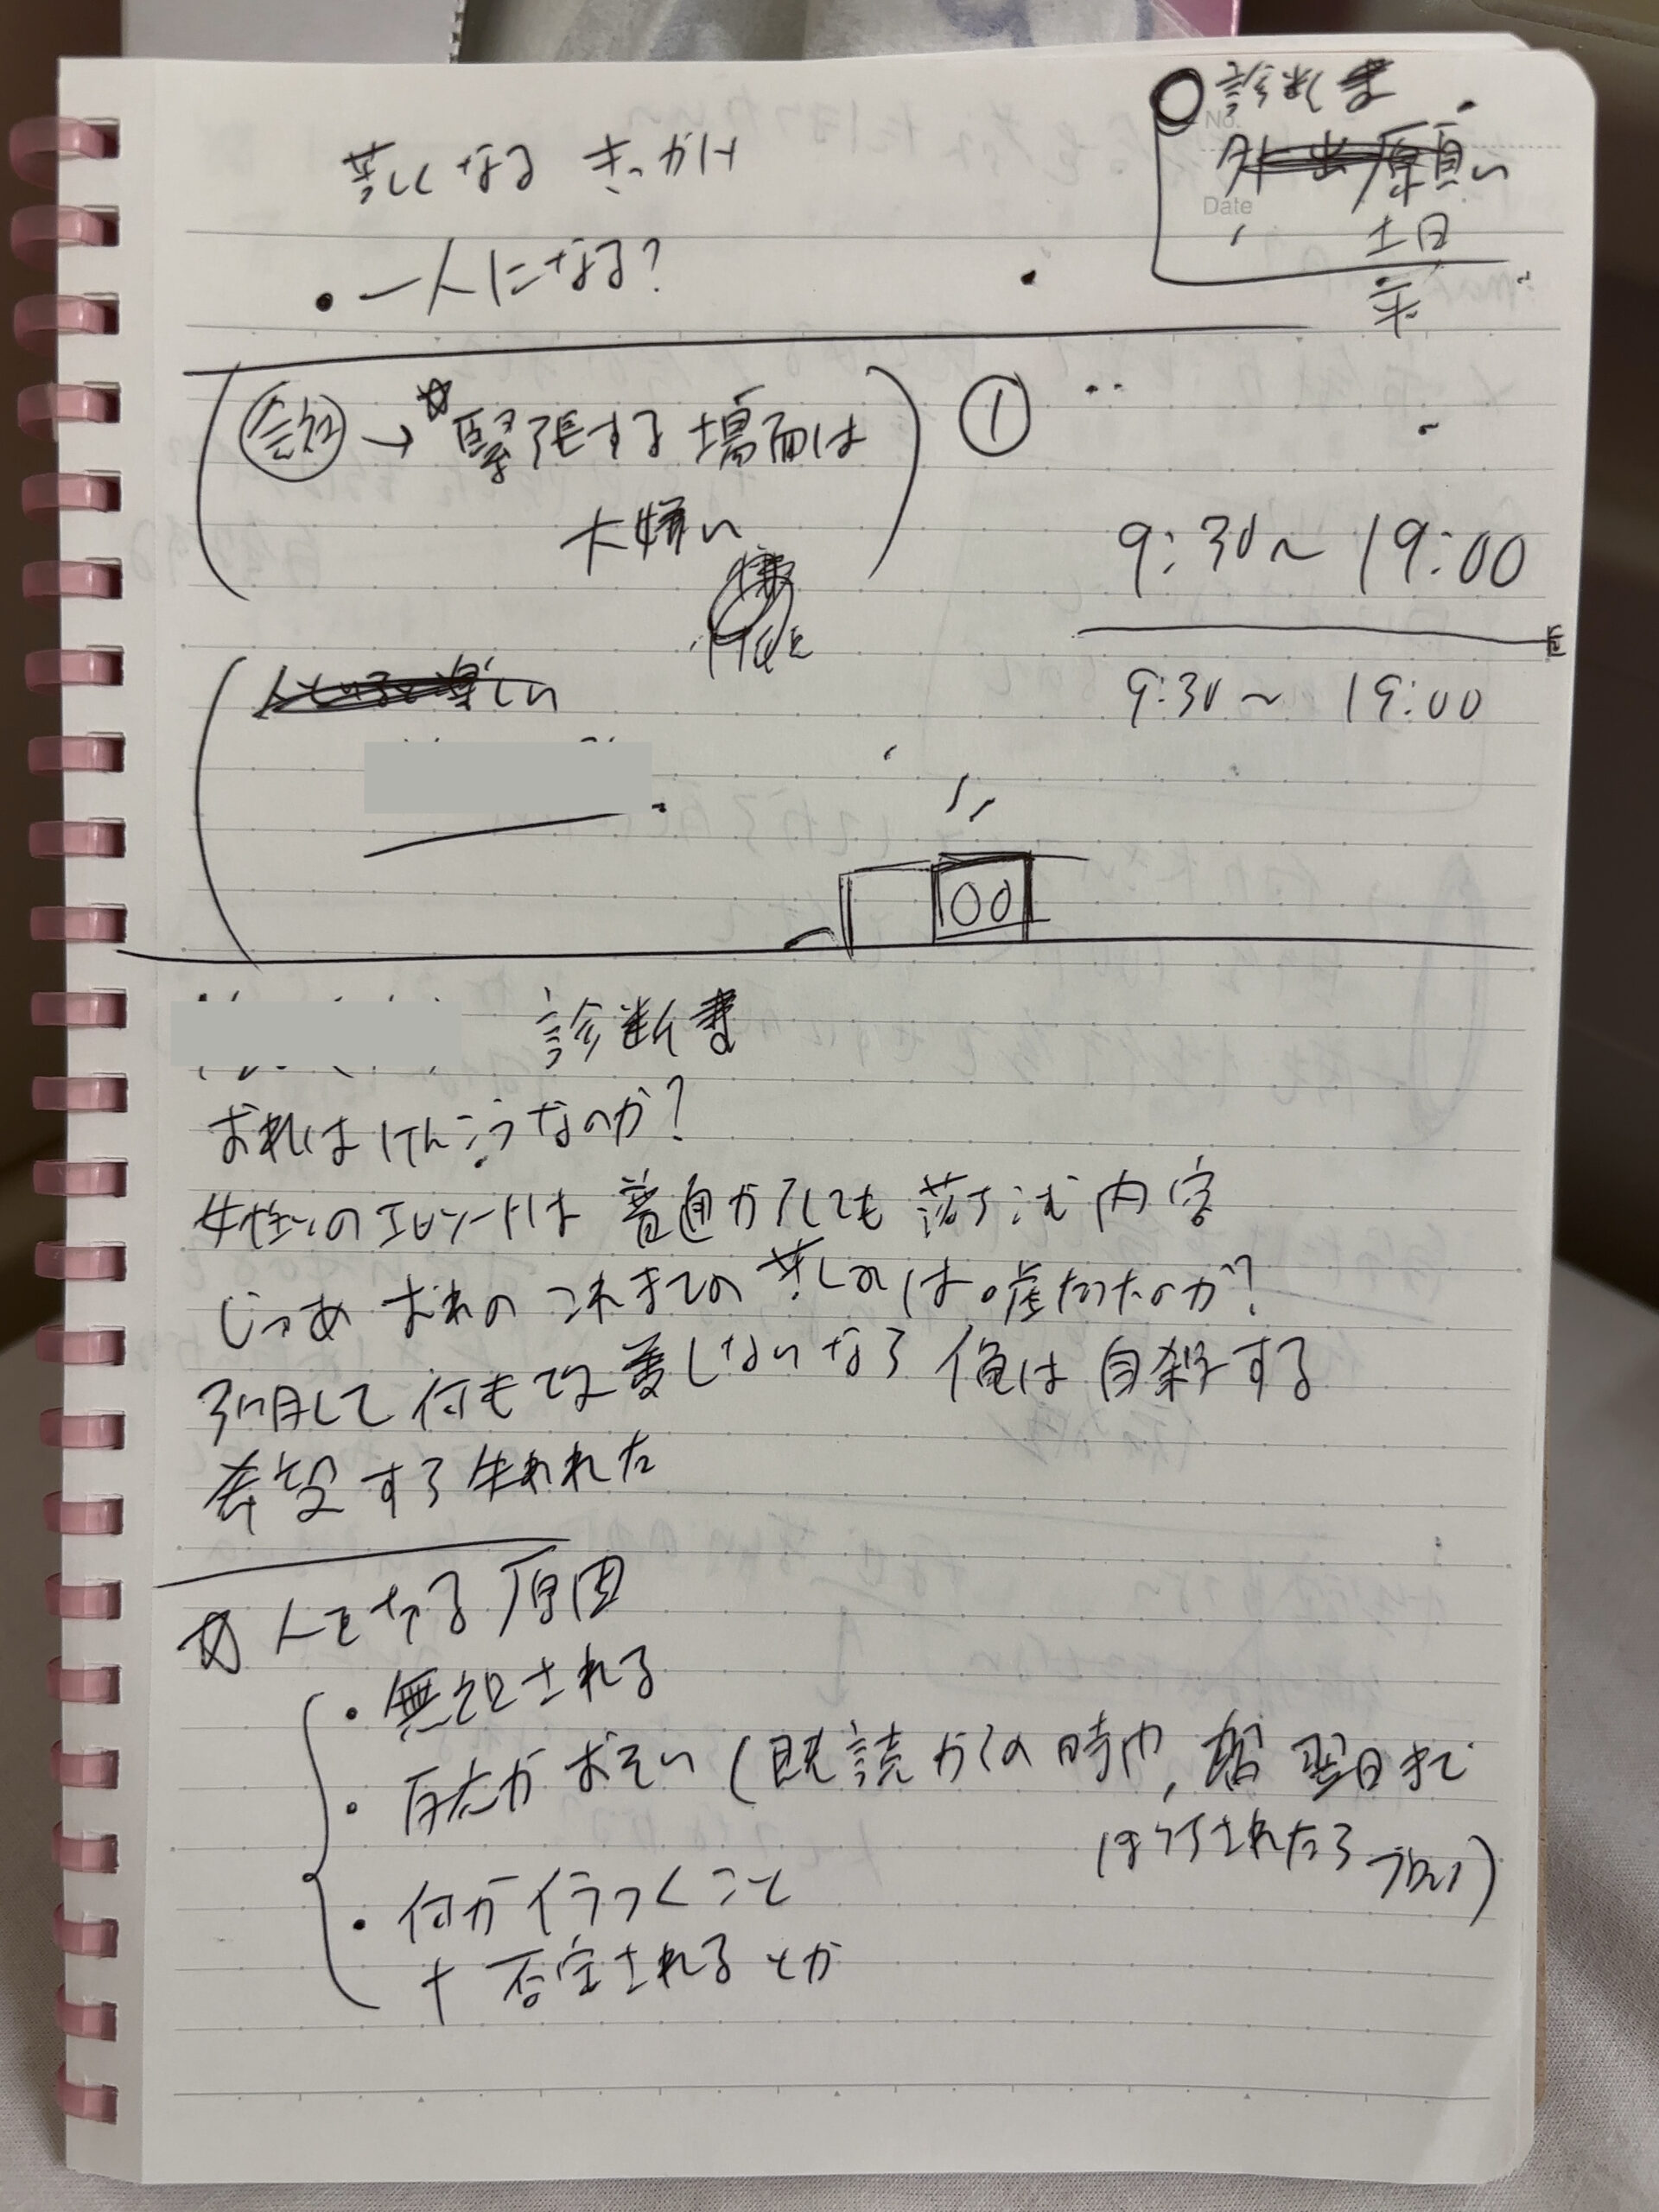 診断書
No.
外出願い
Date
土日
苦しくなる きっかけ
・一人になる?
会社 → ☆緊張する場面は
大嫌い
①
9:30〜19:00
9:30〜19:00
人といると楽しい
00
診断書
おれはけんこうなのか?
女性のエピソードは普通からしても落ち込む内容
じゃあおれのこれまでの苦しみは嘘だったのか?
引用して何も改善しないなら俺は自殺する
希望する失われた
☆人を切る原因
・無視される
・反応がおそい(既読からの時や、翌日まで
放置されたら
・何か傷つくこと
+否定されるとか